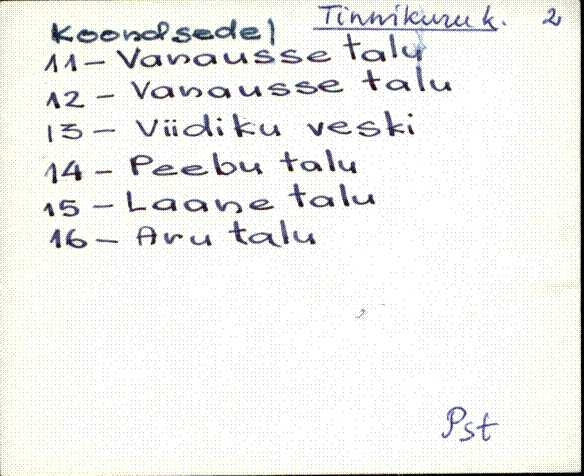 Koondsedel Tinnikuru k. 2
11 – Vanausse talu
12 – Vanausse talu
13 – Viidiku veski
14 – Peebu talu
15 – Laane talu
16 – Aru talu
Pst